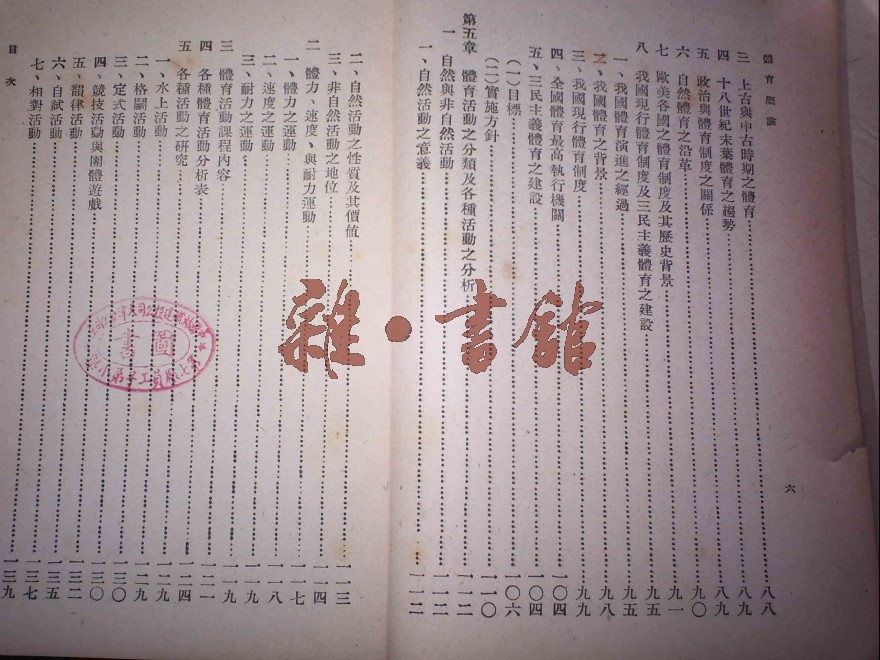 體育概論
六
三 上古與中古時期之體育……八八
四 十八世紀末葉體育之趨勢……八九
五 政治與體育制度之關係……八九
六 自然體育之沿革……九〇
七 歐美各國之體育制度及其歷史背景……九一
八 我國現行體育制度及三民主義體育之建設……九五
一、我國體育演進之經過……九五
二、我國體育之背景……九八
三、我國現行體育制度……九九
四、全國體育最高執行機關……一〇四
五、三民主義體育之建設……一〇四
(一)目標……一〇六
(二)實施方針……一一〇
第五章 體育活動之分類及各種活動之分析……一一二
一 自然與非自然活動……一一二
一、自然活動之意義……一一二
二、自然活動之性質及其價值……一一三
三、非自然活動之地位……一一四
二 體力、速度、與耐力運動……一一七
一、體力之運動……一一八
二、速度之運動……一一九
三、耐力之運動……一一九
三 體育活動課程內容……一二一
四 各種體育活動分析表……一二四
五 各種活動之研究……一二九
一、水上活動……一二九
二、格鬬活動……一三〇
三、定式活動……一三〇
四、競技活動與團體遊戲……一三二
五、韻律活動……一三五
六、自試活動……一三七
七、相對活動……一三九
目次
圖書
雜·書館